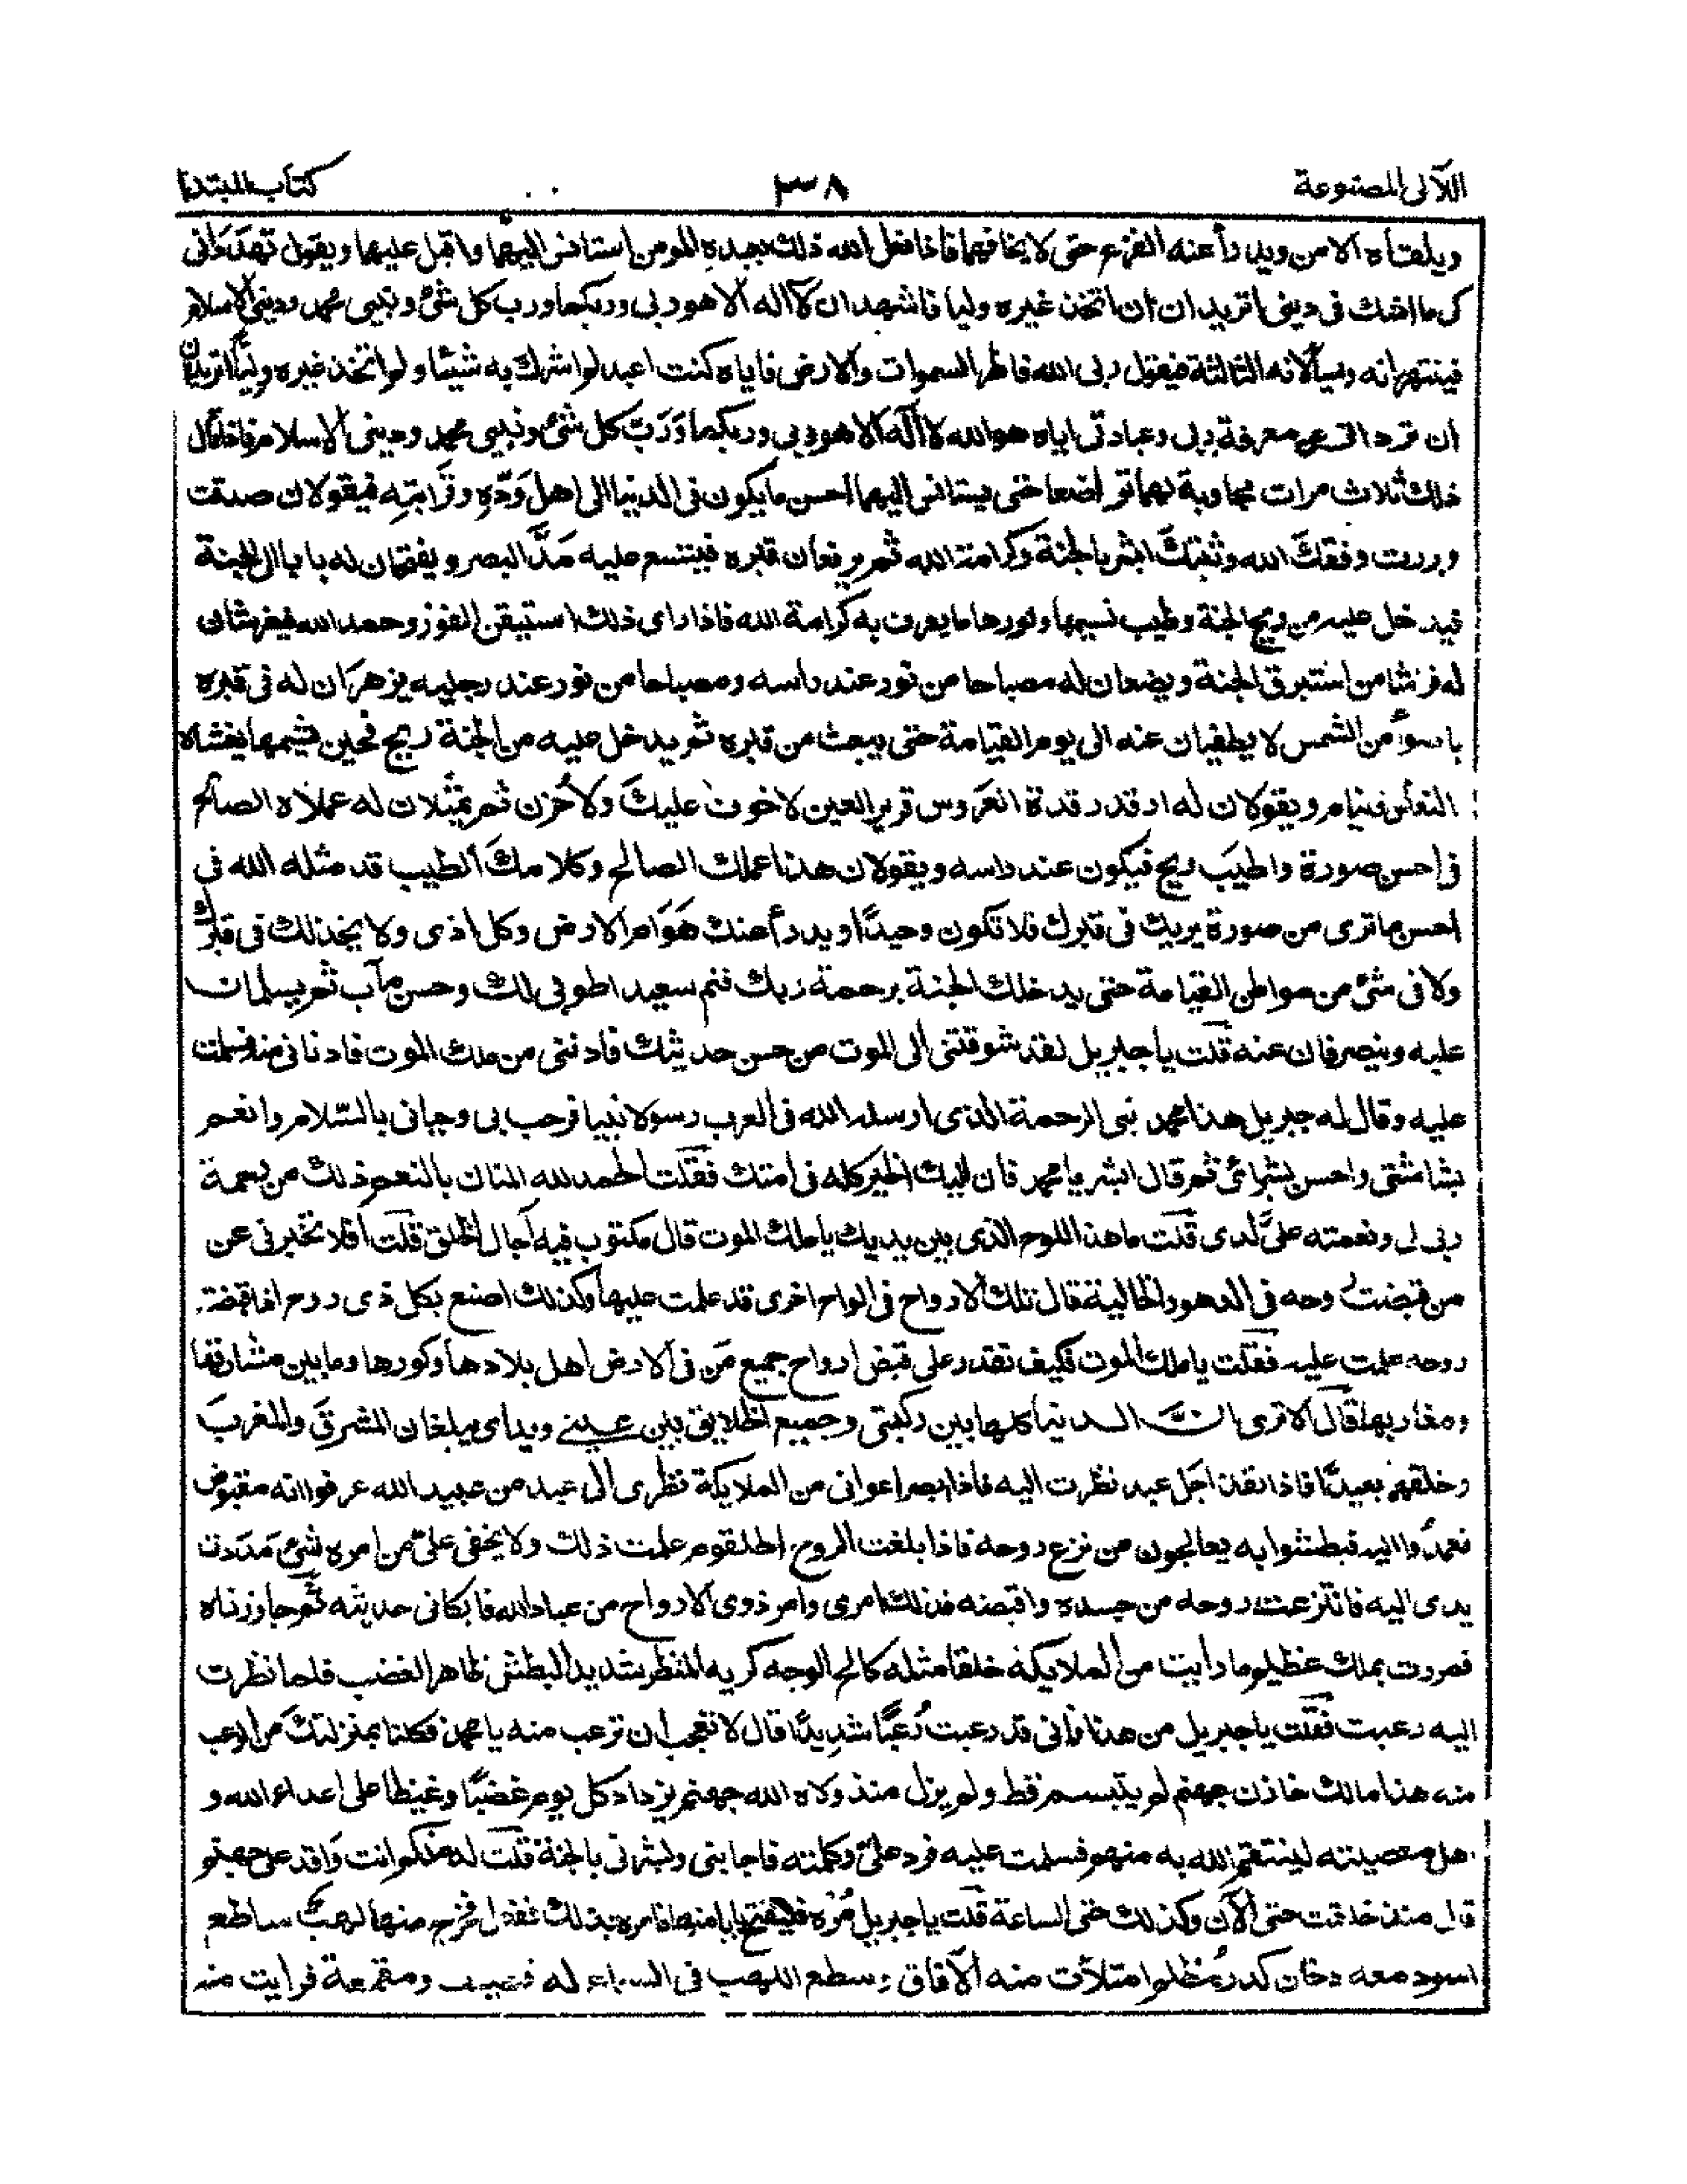 اللآلى المصنوعة ٣٨ كتاب المبتدا
ويلقاه الامن ويدرأ عنه الفزع حتى لا يخافهما فاذا فعل الله ذلك بعبده المومن استانس اليهما واقبل عليهما ويقول تهددانى
كى ما اشك فى دينى اتريدان ان اتخذ غيره وليا فاشهد ان لآ اله الا هو ربى وربكما ورب كل شئ ونبيى محمد ودينى الاسلام
فينتهرانه ويسألانه الثالثة فيقول ربى الله فاطر السموات والارض فاياه كنت اعبد لم اشرك به شيئا ولم اتخذ غيره وليّا اتريدان
ان ترداتى عن معرفة ربى وعبادتى اياه هو الله لا اله الا هو ربى وربكما وَرَبّ كل شئ ونبيى محمد ودينى الاسلام فاذا قال
ذلك ثلاث مرات مجاوبة لهما تواضعا حتى يستانس اليهما احسن ما يكون فى الدنيا الى اهل وَدّهِ وقَرابتِه فيقولان صدقت
وبررت وفقكَ الله وثبتكَ ابشر بالجنة وكرامة الله ثم يرفعان قبره فيتسع عليه مَدَّ البصر ويفتحان له بابا الى الجنة
فيدخل عليه من ريح الجنة وطيب نسيمها ونورها ما يعرف به كرامة الله فاذا راى ذلك استيقن الفوز وحمد الله فيفرشان
له فرشا من استبرق الجنة ويضعان له مصباحا من نور عند راسه ومصباحا من نور عند رجليه يزهران له فى قبره
باضوأ من الشمس لا يطفيان عنه الى يوم القيامة حتى يبعث من قبره ثم يدخل عليه من الجنة ريح فحين يشمها يغشاه
النعاس فينام ويقولان له ارقد رقدة العَروس قرير العين لا خوف عليكَ ولا حُزن ثم يمثّلان له عملاه الصالح
فى احسن صورة واطيَب ريح فيكون عند راسه ويقولان هذا عملك الصالح وكلامكَ الطيب قد مثله الله فى
احسن ما ترى من صورة يريك فى قبرك فلا تكون وحيدًا ويدرأ عنك هَوَام الارض وكل اذى ولا يخذلك فى قبرك
ولا فى شئ من مواطن القيامة حتى يدخلك الجنة برحمة ربك فنم سعيدا طوبى لك وحسن مآب ثم يسلمان
عليه وينصرفان عنه قلت يا جبريل لقد شوقتنى الى الموت من حسن حديثك فادننى من ملك الموت فادنانى منه فسلمت
عليه وقال له جبريل هذا محمد نبى الرحمة الذى ارسله الله فى العرب رسولا نبيا فرحب بى وحيانى بالسّلام وانعم
بشاشتى واحسن بشرائى ثم قال ابشر يا محمد فان اليك الخير كله فى امتك فقلت الحمد لله المنان بالنعم ذلك من رحمة
ربى لى ونعمته علىَّ لدى قلت ما هذا اللوح الذى بين يديك يا ملك الموت قال مكتوب فيه آجال الخلق قلت افلا تخبرنى عن
من قبضت روحه فى الدهور الخالية قال تلك الارواح فى الواح اخرى قد علمت عليها وكذلك اصنع بكل ذى روح اذا قبضت
روحه علمت عليه فقلت يا ملك الموت فكيف تقدر على قبض ارواح جميع مَن فى الارض اهل بلادها وكورها وما بين مشارقها
ومغاربها قال الا ترى انّ الدنيا كلها بين ركبتى وجميع الخلايق بين عينى ويداى يبلغان المشرقَ والمغربَ
وخلقهم بعيدًا فاذا نفذ اجَل عبد نظرت اليه فاذا ابصر اعوانى من الملايكة نظرى الى عبد من عبيد الله عرفوا انه مقبوض
فعمدُوا اليه فبطشوا به يعالجون من نزع روحه فاذا بلغت الروح الحلقوم علمت ذلك ولا يخفى علىّ من امره شئ مَدَدت
يدى اليه فانتزعت روحه من جسده واقبضه فذلك امرى وامر ذوى الارواح من عباد الله فابكانى حديثه ثم جاوزناه
فمررت بملك عظيم وما رايت من الملايكة خلقا مثله كالح الوجه كريه المنظر شديد البطش ظاهر الغضب فلما نظرت
اليه رعبت فقلت يا جبريل من هذا فانى قد رعبت رُعبًا شديدًا قال لا تعجب ان ترعب منه يا محمد فكلنا بمنزلتكَ من الرعب
منه هذا مالك خازن جهنم لم يتبسم قط ولم يزل منذ ولاه الله جهنم يزداد كل يوم غضبًا وغيظا على اعداء الله و
اهل معصيته لينتقم الله به منهم فسلمت عليه فرد علىّ وكلمته فاجابنى وبشرنى بالجنة قلت له منذكم انت وَاقد على جهنم
قال منذ خلقت حتى الآن وكذلك حتى الساعة قلت يا جبريل مُرْه فليفتح بابا منها فامره بذلك ففعل فخرج منها لهبٌ ساطع
اسود معه دخان كدر مُظلم امتلأت منه الآفاق وسطع اللهب فى السماء له قصيف ومقمعة فرايت منه